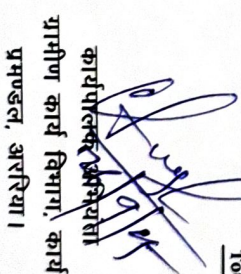 कार्यपालक अभियंता
ग्रामीण कार्य विभाग, कार्य
प्रमण्डल, अररिया।